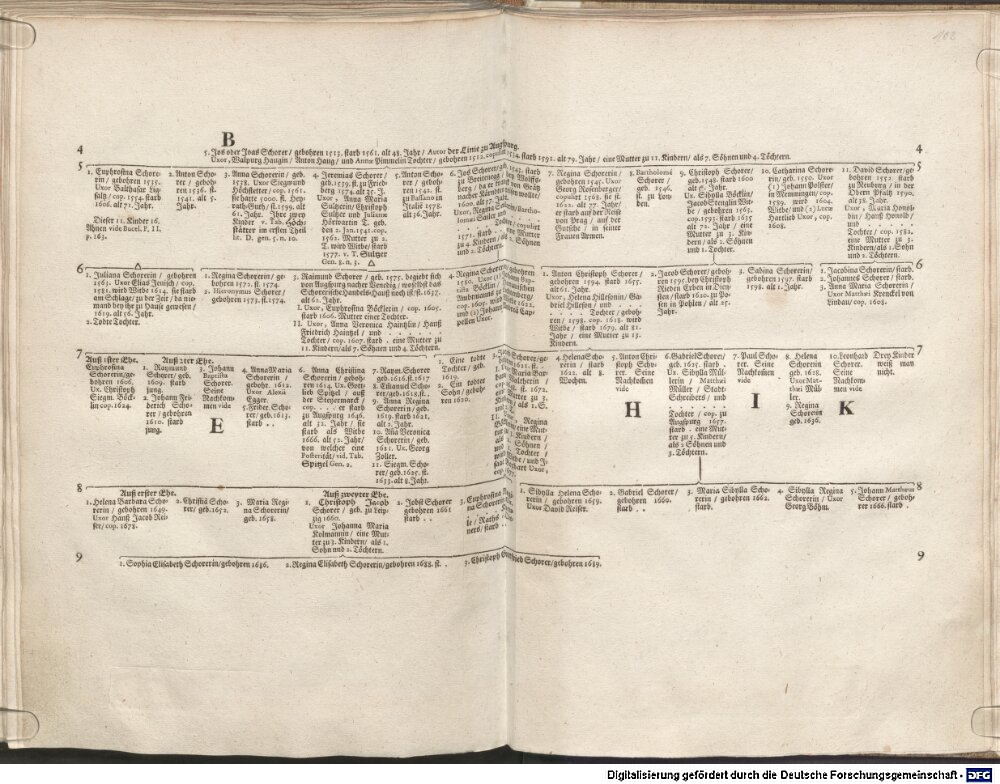 103
B
4
5. Jos oder Joas Schorer / gebohren 1513. starb 1561. alt 48. Jahr / Autor der Linie zu Augspurg.
4
Uxor, Walpurg Haugin / Anton Haug / und Annæ Pimmelin Tochter / gebohren 1512. copuliert 1534. starb 1592. alt 79. Jahr / eine Mutter zu 11. Kindern / als 7. Söhnen und 4. Töchtern.
5
1. Euphrosina Schore-
rin / gebohren 1535.
Uxor Balthasar
/ cop. 1554. starb
1606. alt 71. Jahr.
Dieser 11. Kinder 16.
Ahnen vide Bucel. P. II.
p. 163.
2. Anton Scho-
rer / geboh-
ren 1536. st.
1541. alt 5.
Jahr.
3. Anna Schorerin /
geb. 1538.
Uxor Siegmund
Höchstetter / cop. 1561.
sie hatte 5000. st. Hey-
rath-Guth / st. 1599. alt
61. Jahr. Ihre zwey
Kinder v. Tab. Höch-
stätter im ersten Theil
lit. D. gen. 5. n. 10.
4. Jeremias Schorer /
geb. 1539. st. zu Fried-
berg 1574. alt 35. J.
Uxor, Anna Maria
Sultzerin / Christoph
Sultzer und Julianæ
Hörwartin T. geb.
den 2. Jan. 1541. cop.
1562. Mutter zu 2.
T. wird Witbe / starb
1577. v. T. Sultzer
Gen. 8. n. 3.
5. Anton Scho-
rer / geboh-
ren 1541. st.
zu Fasiano in
Italiâ 1578.
alt 36. Jahr.
6. Jos Schorer / geb. 1543. starb
zu
berg / da er
nacher Kärndten
1600. alt 57. Jahr.
Uxor, Regina
Tochter / copuliert
1571. starb
zu 4. Kindern / als 2. Söhnen
und 2. Töchtern.
7. Regina Schorerin /
gebohren 1545. Uxor
Georg Rosenberger /
copuliert 1568. sie st.
1622. alt 77. Jahr /
er starb auf der Reise
von Prag / auf der
Gutsche / in seiner
Frauen Armen.
8. Bartholomæ
Schorer /
geb. 1546.
st. zu Lon-
den.
9. Christoph Schorer /
geb. 1548. starb 1600
alt 51. Jahr.
Ux. Sibylla Böcklin /
Jacob Stenglin Wit-
be / gebohren 1563.
cop. 1593. starb 1635
alt 72. Jahr / eine
Mutter zu 3. Kin-
dern / als 2. Söhnen
und 1. Tochter.
10. Catharina Schore-
rin / geb. 1550. Uxor
(1) Johann Polster /
in Memmingen / cop.
1589. wird 1604.
Witbe / und (2)
Hartlieb Uxor, cop.
1608.
11. David Schorer / ge-
bohren 1552. starb
zu Neuburg / in der
Obern Pfaltz 1590.
alt 38. Jahr.
Uxor, Maria Honol-
din / Hanß Honold /
und . . . .
Tochter / cop. 1582.
eine Mutter zu 3.
Kindern / als 1. Sohn
und 2. Töchtern.
5
6
1. Juliana Schorerin / gebohren
1562. Uxor Elias Jenisch / cop.
1581. wird Witbe 1614. sie starb
am Schlage / zu der Zeit / da nie-
mand bey ihr zu Hause gewesen /
1619. alt 56. Jahr.
2. Todte Tochter.
1. Regina Schorerin / ge-
bohren 1572. st. 1574.
2. Hieronymus Schorer /
gebohren 1573. st. 1574.
3. Raimund Schorer / geb. 1575. begiebt sich
von Augspurg nacher Venedig / woselbst das
Schorerische Handels-Hauß noch ist / st. 1637.
alt 62. Jahr.
I. Uxor, Euphrosina Böcklerin / cop. 1605.
starb 1606. Mutter einer Tochter.
II. Uxor, Anna Veronica Haintzlin / Hanß
Friedrich Haintzel / und . . . . .
Tochter / cop. 1607. starb . eine Mutter zu
11. Kindern / als 7. Söhnen und 4. Töchtern.
4. Regina Schorerin gebohren
und (2) Johann
pollen Uxor.
1. Anton Christoph Schorer / geboh-
ren 1594. starb 1655. alt 61. Jahr.
Uxor, Helena Hillesonin / Ga-
briel Hilleson / und . . . . .
. . . . Tochter / geboh-
ren / 1598. cop. 1618. wird
Witbe / starb 1679. alt 81.
Jahr / eine Mutter zu 13.
Kindern.
2. Jacob Schorer / geboh-
ren 1595. bey Christoph
Rieden Erben in Dien-
sten / starb 1620. zu Po-
sen in Pohlen / alt 25.
Jahr.
3. Sabina Schorerin /
gebohren 1597. starb
1598. alt 1. Jahr.
1. Jacobina Schorerin / starb.
2. Johannes Schorer / starb.
3. Anna Maria Schorerin /
Uxor Matthæi Krenckel von
Lindau / cop. 1604.
6
7
Auß 1ster Ehe.
Euphrosina
Schorerin / ge-
bohren 1606.
Ux. Christoph
Siegm. Böck-
lin / cop. 1624.
Auß 2ter Ehe.
1. Raymund
Schorer / geb.
1609. starb
jung.
2. Johann Fri-
derich Scho-
rer / gebohren
1610. starb
jung.
3. Johann
Baptista
Schorer.
Seine
Nachkom-
men vide
E
4. Anna Maria
Schorerin /
gebohr. 1612.
Ux. Alexii
Egger.
5. Frider. Scho-
rer / geb. 1613.
starb . .
6. Anna Christina
Schorerin / geboh-
ren 1614. Ux. Gott-
lieb Spitzel / auß
der Steyermarck /
cop. . . . er starb
zu Augspurg 1646.
alt 32. Jahr / sie
starb als Witbe
1666. alt 52. Jahr /
von welcher eine
Posterität / vid. Tab.
Spitzel Gen. 2.
7. Raym. Schorer
geb. 1616. st. 1617
8. Emanuel Scho-
rer / geb. 1618. st. .
9. Anna Regina
Schorerin / geb.
1619. starb 1621.
10. Ana Veronica
Schorerin / geb.
1621. Ux. Georg
Zoller.
11. Siegm. Scho-
rer / geb. 1625. st.
1633. alt 8. Jahr.
1. Eine todte
Tochter / geb.
1619.
2. Ein todter
Sohn / geboh-
ren 1620.
4. Helena Scho-
rerin / geb. .
1622. alt 8.
Wochen.
5. Anton Chri-
stoph Scho-
rer. Seine
Nachkomen
vide
H
6. Gabriel Schorer /
geb. 1625. st. 1657.
Ux. Sibylla Mül-
lerin / Matthæi
Müller / Stadt-
Schreibers / und
. . . . . .
Tochter / cop. zu
Augspurg 1657.
starb . eine Mut-
ter zu 5. Kindern /
als 2. Söhnen und
3. Töchtern.
7. Paul Scho-
rer. Seine
Nachkomen
vide
I
8. Helena
Schorerin /
geb. 1628.
Uxor Mat-
thæi Mül-
ler.
9. Regina
Schorerin
geb. 1636.
10. Leonhard
Schorer.
Seine
Nachkom-
men vide
K
Drey Kinder
weiß man
nicht.
7
8
Auß erster Ehe.
1. Helena Barbara Scho-
rerin / gebohren 1649.
Uxor Hanß Jacob Rei-
ser / cop. 1678.
2. Christia Scho-
rer / geb. 1652.
3. Maria Regi-
na Schorerin /
geb. 1658.
Auß zweyter Ehe.
1. Christoph Jacob
Schorer / geb. zu Leip-
zig 1660.
Uxor Johanna Maria
Kolmannin / eine Mut-
ter zu 3. Kindern / als 1.
Sohn und 2. Töchtern.
2. Jobst Schorer
gebohren 1661
starb . .
3. Euphrosina
1. Sibylla Helena Scho-
rerin / gebohren 1659.
Uxor David Reiser.
2. Gabriel Schorer /
gebohren 1660.
starb . .
3. Maria Sibylla Scho-
rerin / gebohren 1662.
starb.
4. Sibylla Regina
Schorerin / Uxor
Georg Böhm.
5. Johann Matthæus
Schorer / geboh-
ren 1666. starb .
8
9
1. Sophia Elisabeth Schorerin / gebohren 1686.
2. Regina Elisabeth Schorerin / gebohren 1688. st. .
3. Christoph Gottfried Schorer / gebohren 1689.
9
Digitalisierung gefördert durch die Deutsche Forschungsgemeinschaft - DFG